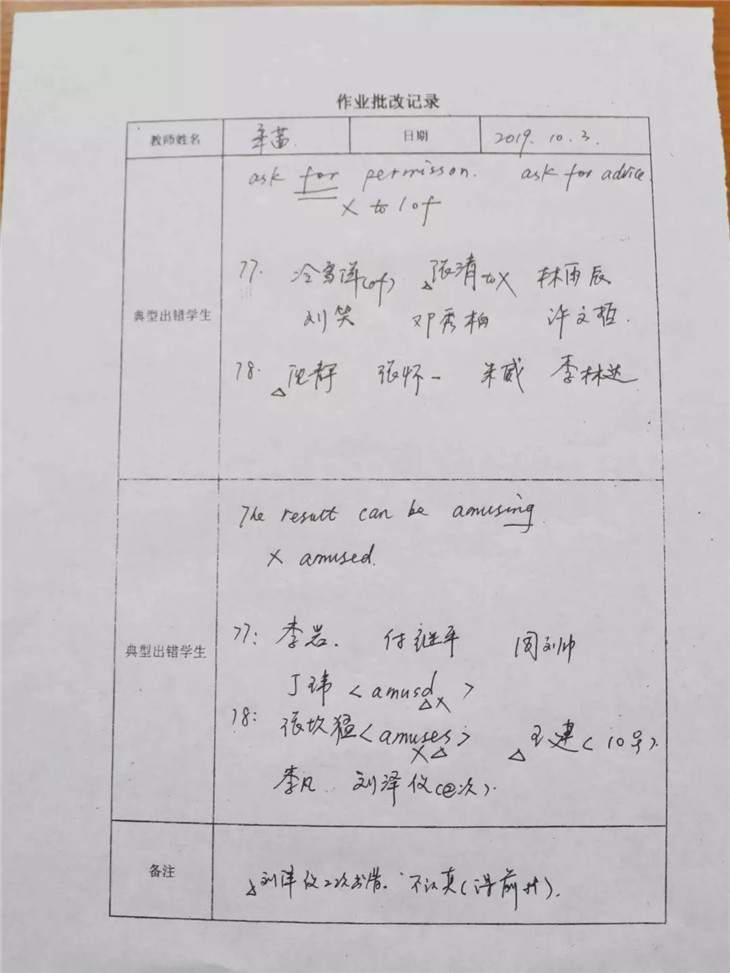 作业批改记录
教师姓名 辛茜. 日期 2019. 10. 3.
ask for permisson. ask for advice
X to / of
典型出错学生
77. 冷雪洋(of) △张清 to X 林雨辰
刘笑 邓秀柏 许文哲.
78. △倪静 张怀一 朱威 李林达
The result can be amusing
X amused.
典型出错学生
77: 李岩. 付继平 周刘帅
丁玮 < amusd △X >
78: 张坎猛 < amuses X△ > △王建 ( 10号).
李凡 刘泽仪 (②次).
备注
△刘泽仪2次出错. 不认真(